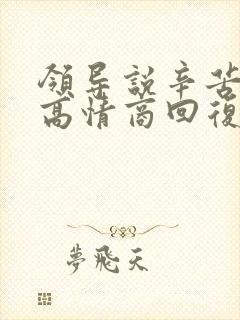 領导説辛苦
高情商回復
夢飛天